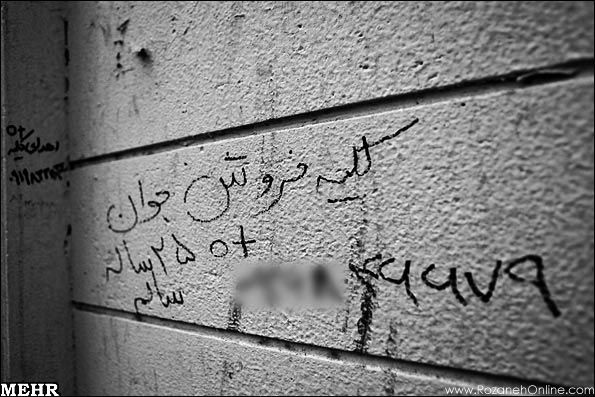 کلیه فروش جوان
O+ ۲۵ ساله
سالم
۹۹۷۹
O+
کلیه
MEHR
www.RozanehOnline.com